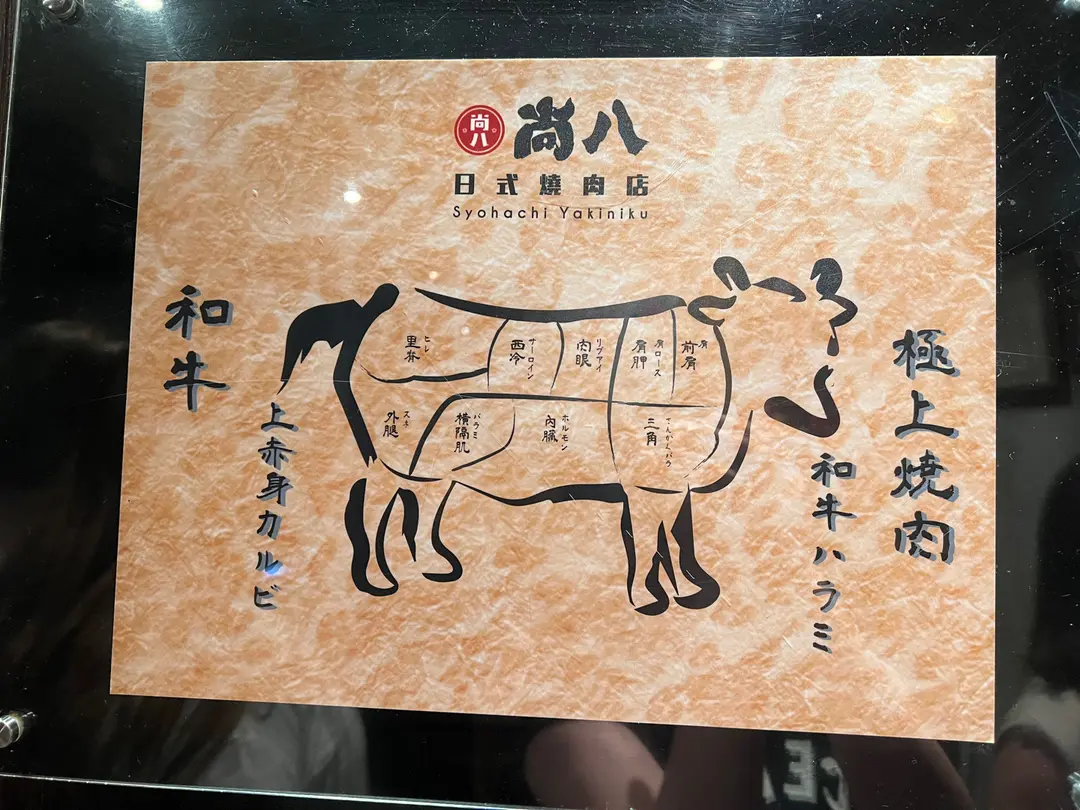 尚八
尚八
日式燒肉店
Syohachi Yakiniku
極上焼肉
和牛ハラミ
和牛
上赤身カルビ
里脊
ヒレ
西冷
サーロイン
肉眼
リブアイ
肩胛
肩ロース
前肩
肩
外腿
スネ
橫隔肌
バラミ
內臟
ホルモン
三角